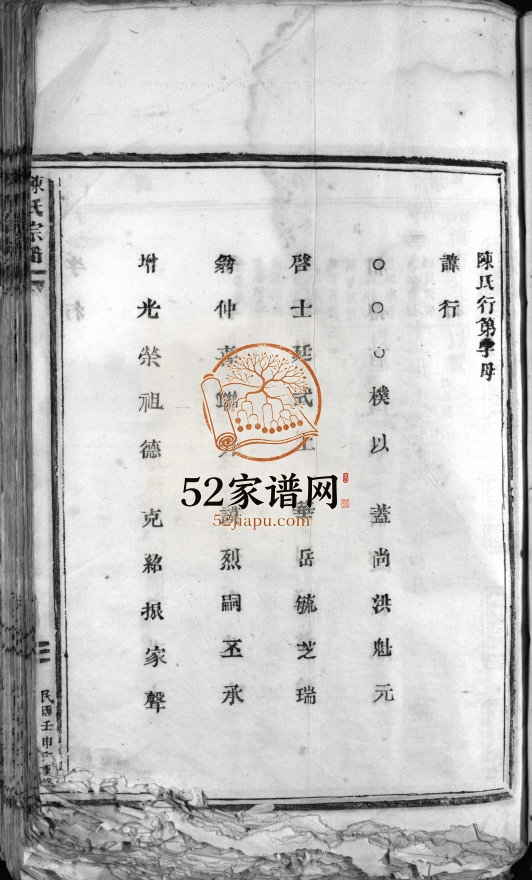 陳氏行第字母
諱行
○○○樸以 蓋尚洪魁元
啓士延武 華岳毓芝瑞
翁仲 烈嗣丕承
增光榮祖德 克紹振家聲
陳氏宗譜
民國壬申
52家谱网
52jiapu.com